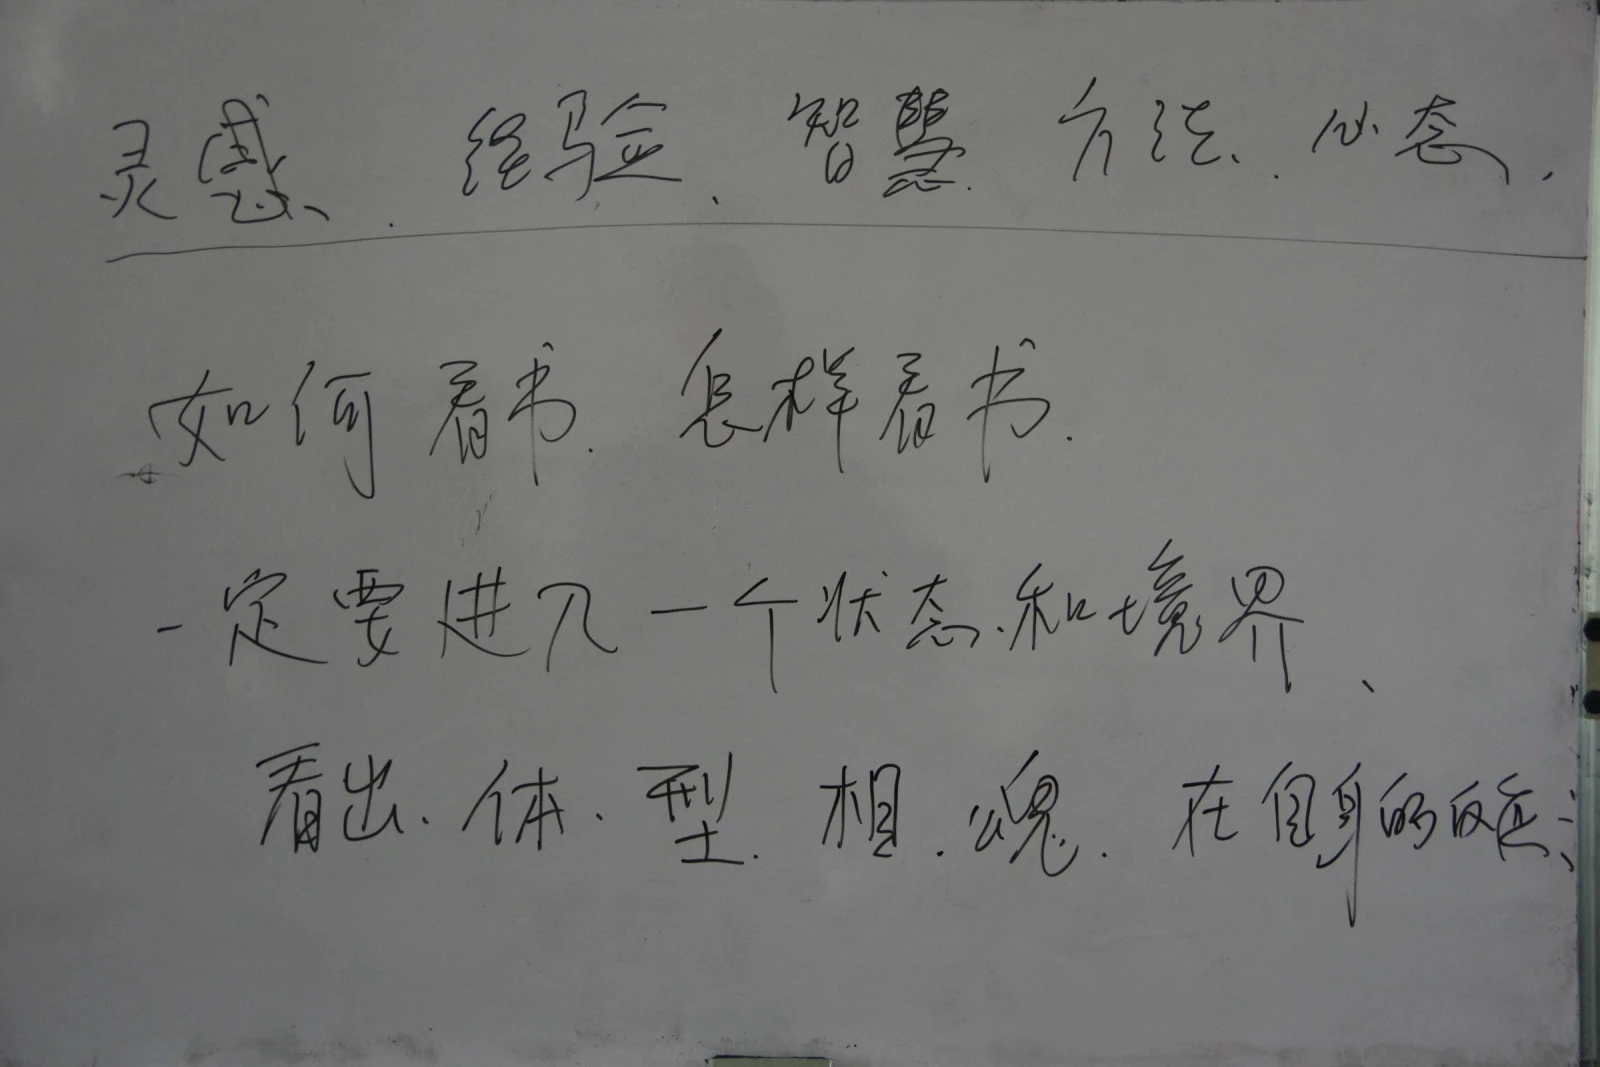 灵感、经验、智慧.方法、心态.
如何看书.怎样看书.
一定要进入一个状态、和境界、
看出.体.型.相.魂.在自身的反应: